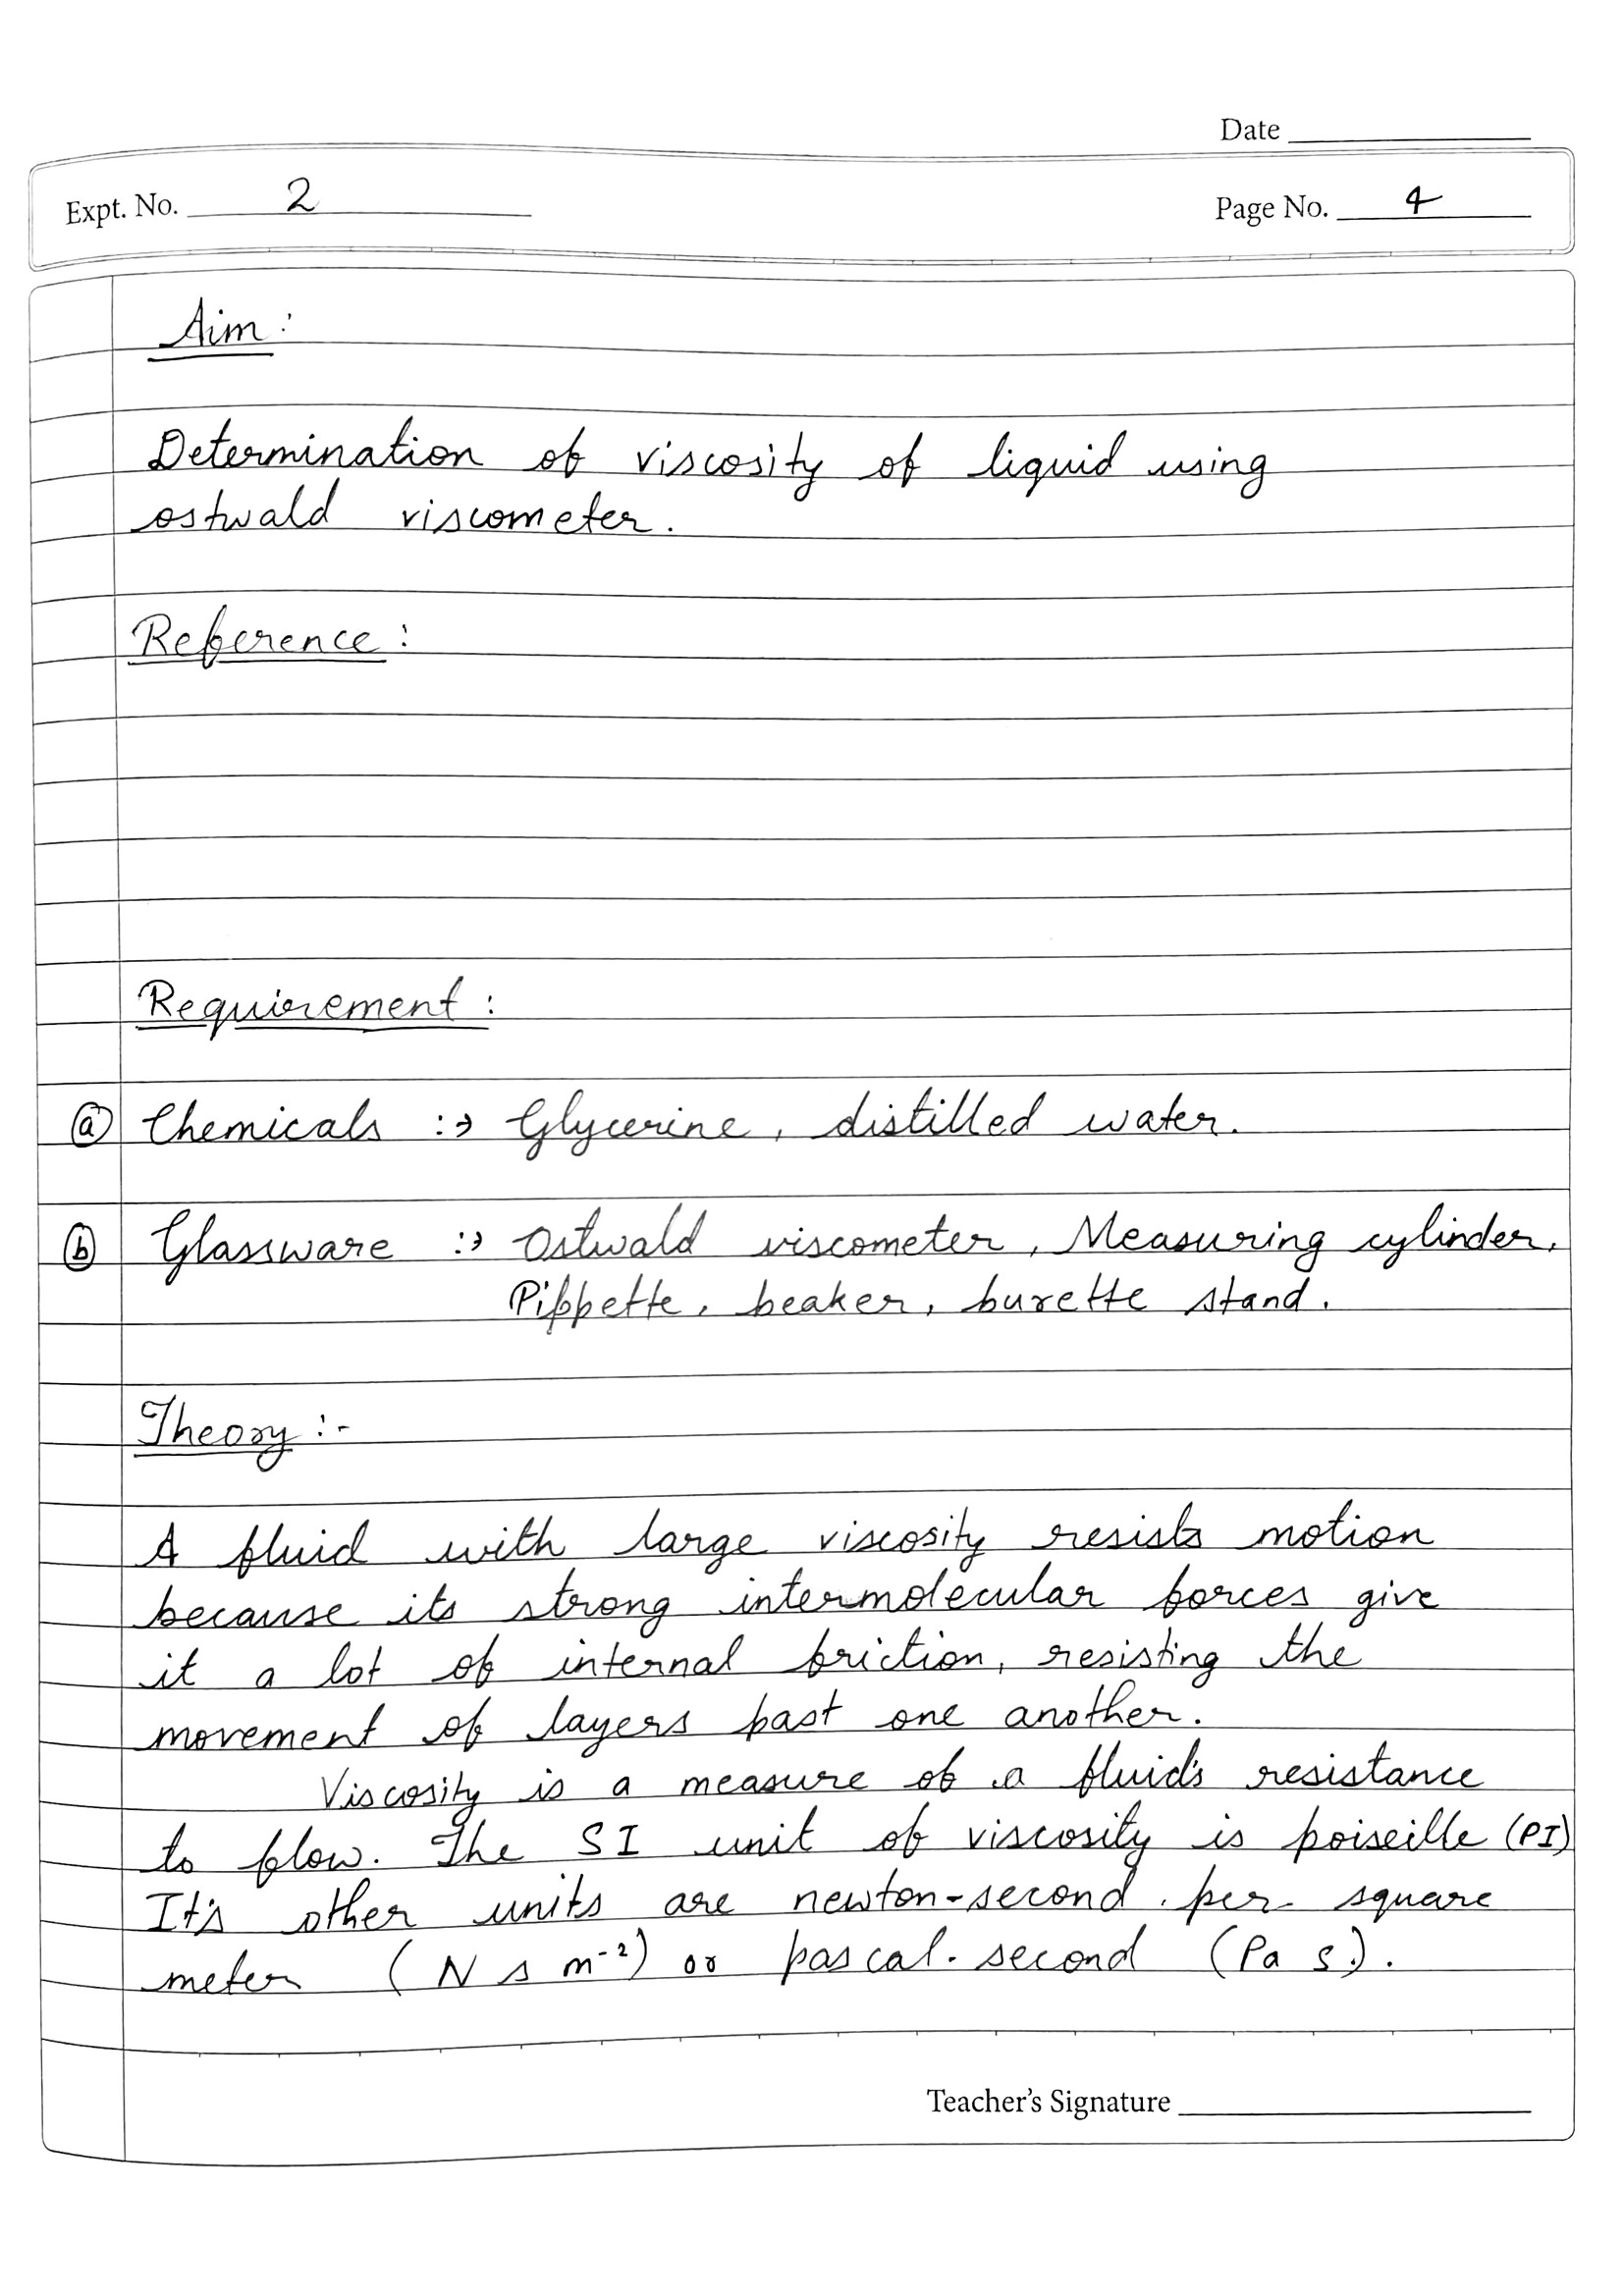 Date
Expt. No. 2
Page No. 4
Aim :
Determination of viscosity of liquid using
ostwald viscometer.
Reference :
Requirement :
(a) Chemicals :→ Glycerine, distilled water.
(b) Glassware :→ Ostwald viscometer, Measuring cylinder,
Pippette, beaker, burette stand.
Theory :-
A fluid with large viscosity resists motion
because its strong intermolecular forces give
it a lot of internal friction, resisting the
movement of layers past one another.
Viscosity is a measure of a fluid's resistance
to flow. The SI unit of viscosity is poiseille (PI)
It's other units are newton-second per square
meter (N s m⁻²) or pascal-second (Pa s.).
Teacher's Signature